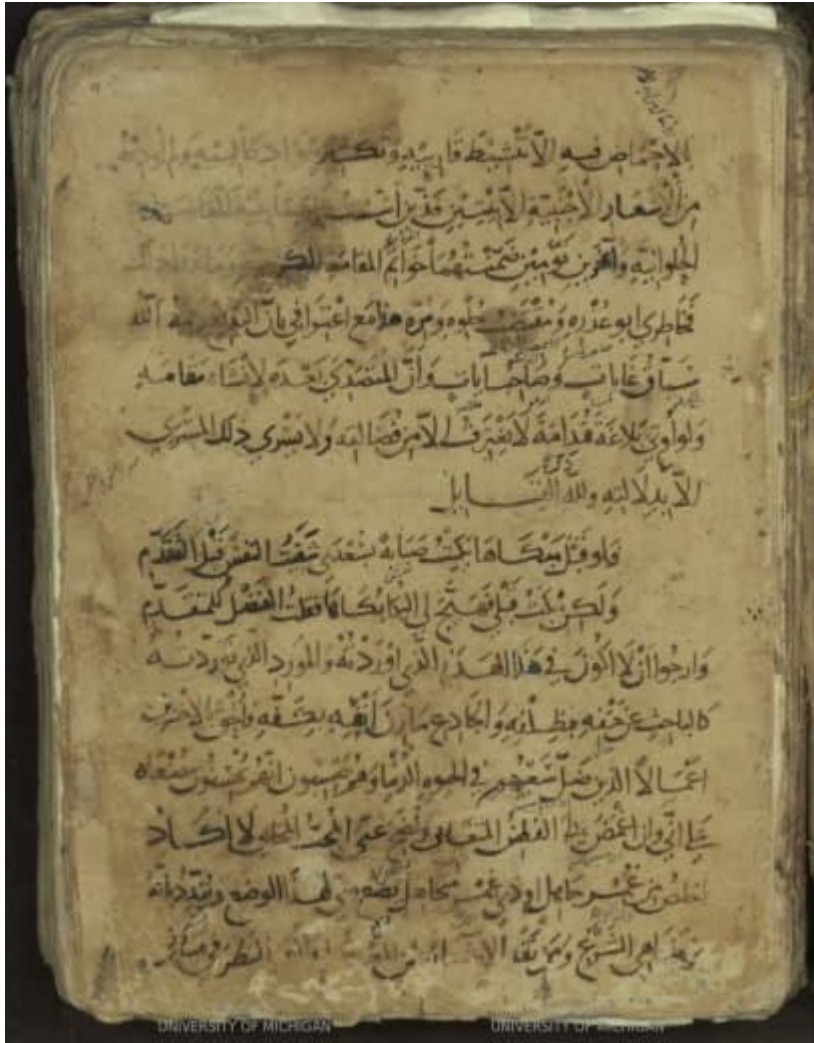 بالاحماض فيه الا تنشيط قارييه وتكثير سواد طالبيه ولم اودعه
من الاشعار الاجنبية الا بيتين فذين اسست
الحلوانية وآخرين توأمين ضمنتهما خواتم المقامة الكر وما عدا ذلك
فخاطري ابو عذره ومقتضب حلوه ومره هذا مع اعترافي بان البديع رحمه الله
سباق غايات وصاحب آيات وأن المتصدي بعده لانشاء مقامه
ولو اوتي بلاغة قدامة لا يغترف الا من فضالته ولا يسري ذلك المسري
الا بدلالته ولله القايل
ولو قبل مبكاها بكيت صبابة بسعدى شفيت النفس قبل التندم
ولكن بكت قبلي فهيج لي البكا بكاها فقلت الفضل للمتقدم
وارجوا أن لا اكون في هذا الهذر الذي اوردته والمورد الذي توردته
كالباحث عن حتفه بظلفه والجادع مارن أنفه بكفه فالحق بالاخسرين
اعمالا الذين ضل سعيهم في الحيوة الدنيا وهم يحسبون انهم يحسنون صنعا
على اني وان اغمض لي الفطن المتغابي ونضح عني المحب المحابي لا اكاد
اخلص من غمر جاهل او ذي غمر متجاهل يضع مني لهذا الوضع ويندد بانه
من مناهي الشرع ومن نقد الاشياء بعين النظر في مباني
UNIVERSITY OF MICHIGAN UNIVERSITY OF MICHIGAN